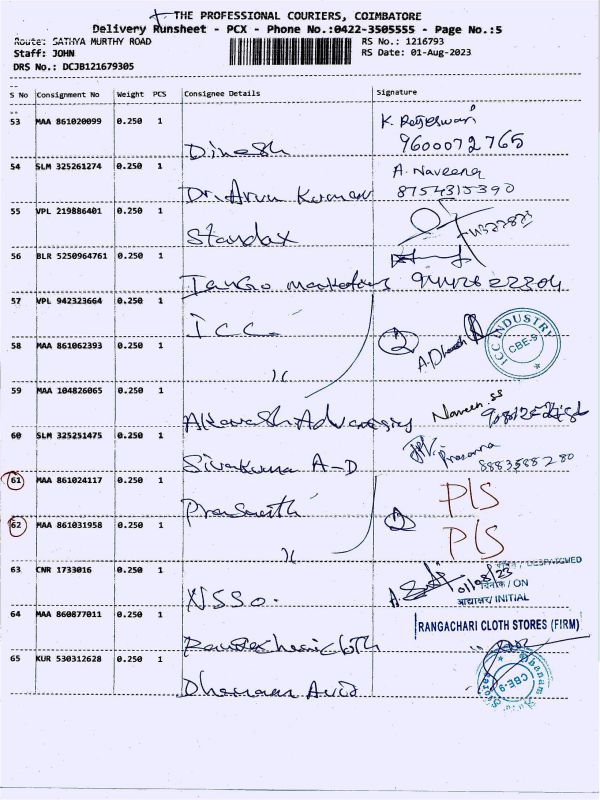 THE PROFESSIONAL COURIERS, COIMBATORE
Delivery Runsheet - PCX - Phone No.:0422-3505555 - Page No.:5
Route: SATHYA MURTHY ROAD RS No.: 1216793
Staff: JOHN RS Date: 01-Aug-2023
DRS No.: DCJB121679305
S No Consignment No Weight PCS Consignee Details Signature
53 MAA 861020099 0.250 1 K. Rajeswari
Dinesh 9600072765
54 SLM 325261274 0.250 1 A. Naveena
Dr. Arun Kumar 8754315390
55 VPL 219886401 0.250 1
Standax
56 BLR 5250964761 0.250 1
57 VPL 942323664 0.250 1
I C C 2
58 MAA 861062393 0.250 1 ICC INDUSTRY CBE-9
59 MAA 104826065 0.250 1 Naveen.ss
60 SLM 325251475 0.250 1 Prasanna
Sivakumar A-D 8883588280
61 MAA 861024117 0.250 1 PLS
Prasanth 2
62 MAA 861031958 0.250 1 PLS
63 CNR 1733016 0.250 1
NSSO. 01/08/23
दिनांक/ON
आद्याक्षर/INITIAL
64 MAA 860877011 0.250 1 RANGACHARI CLOTH STORES (FIRM)
65 KUR 530312628 0.250 1 CBE-9